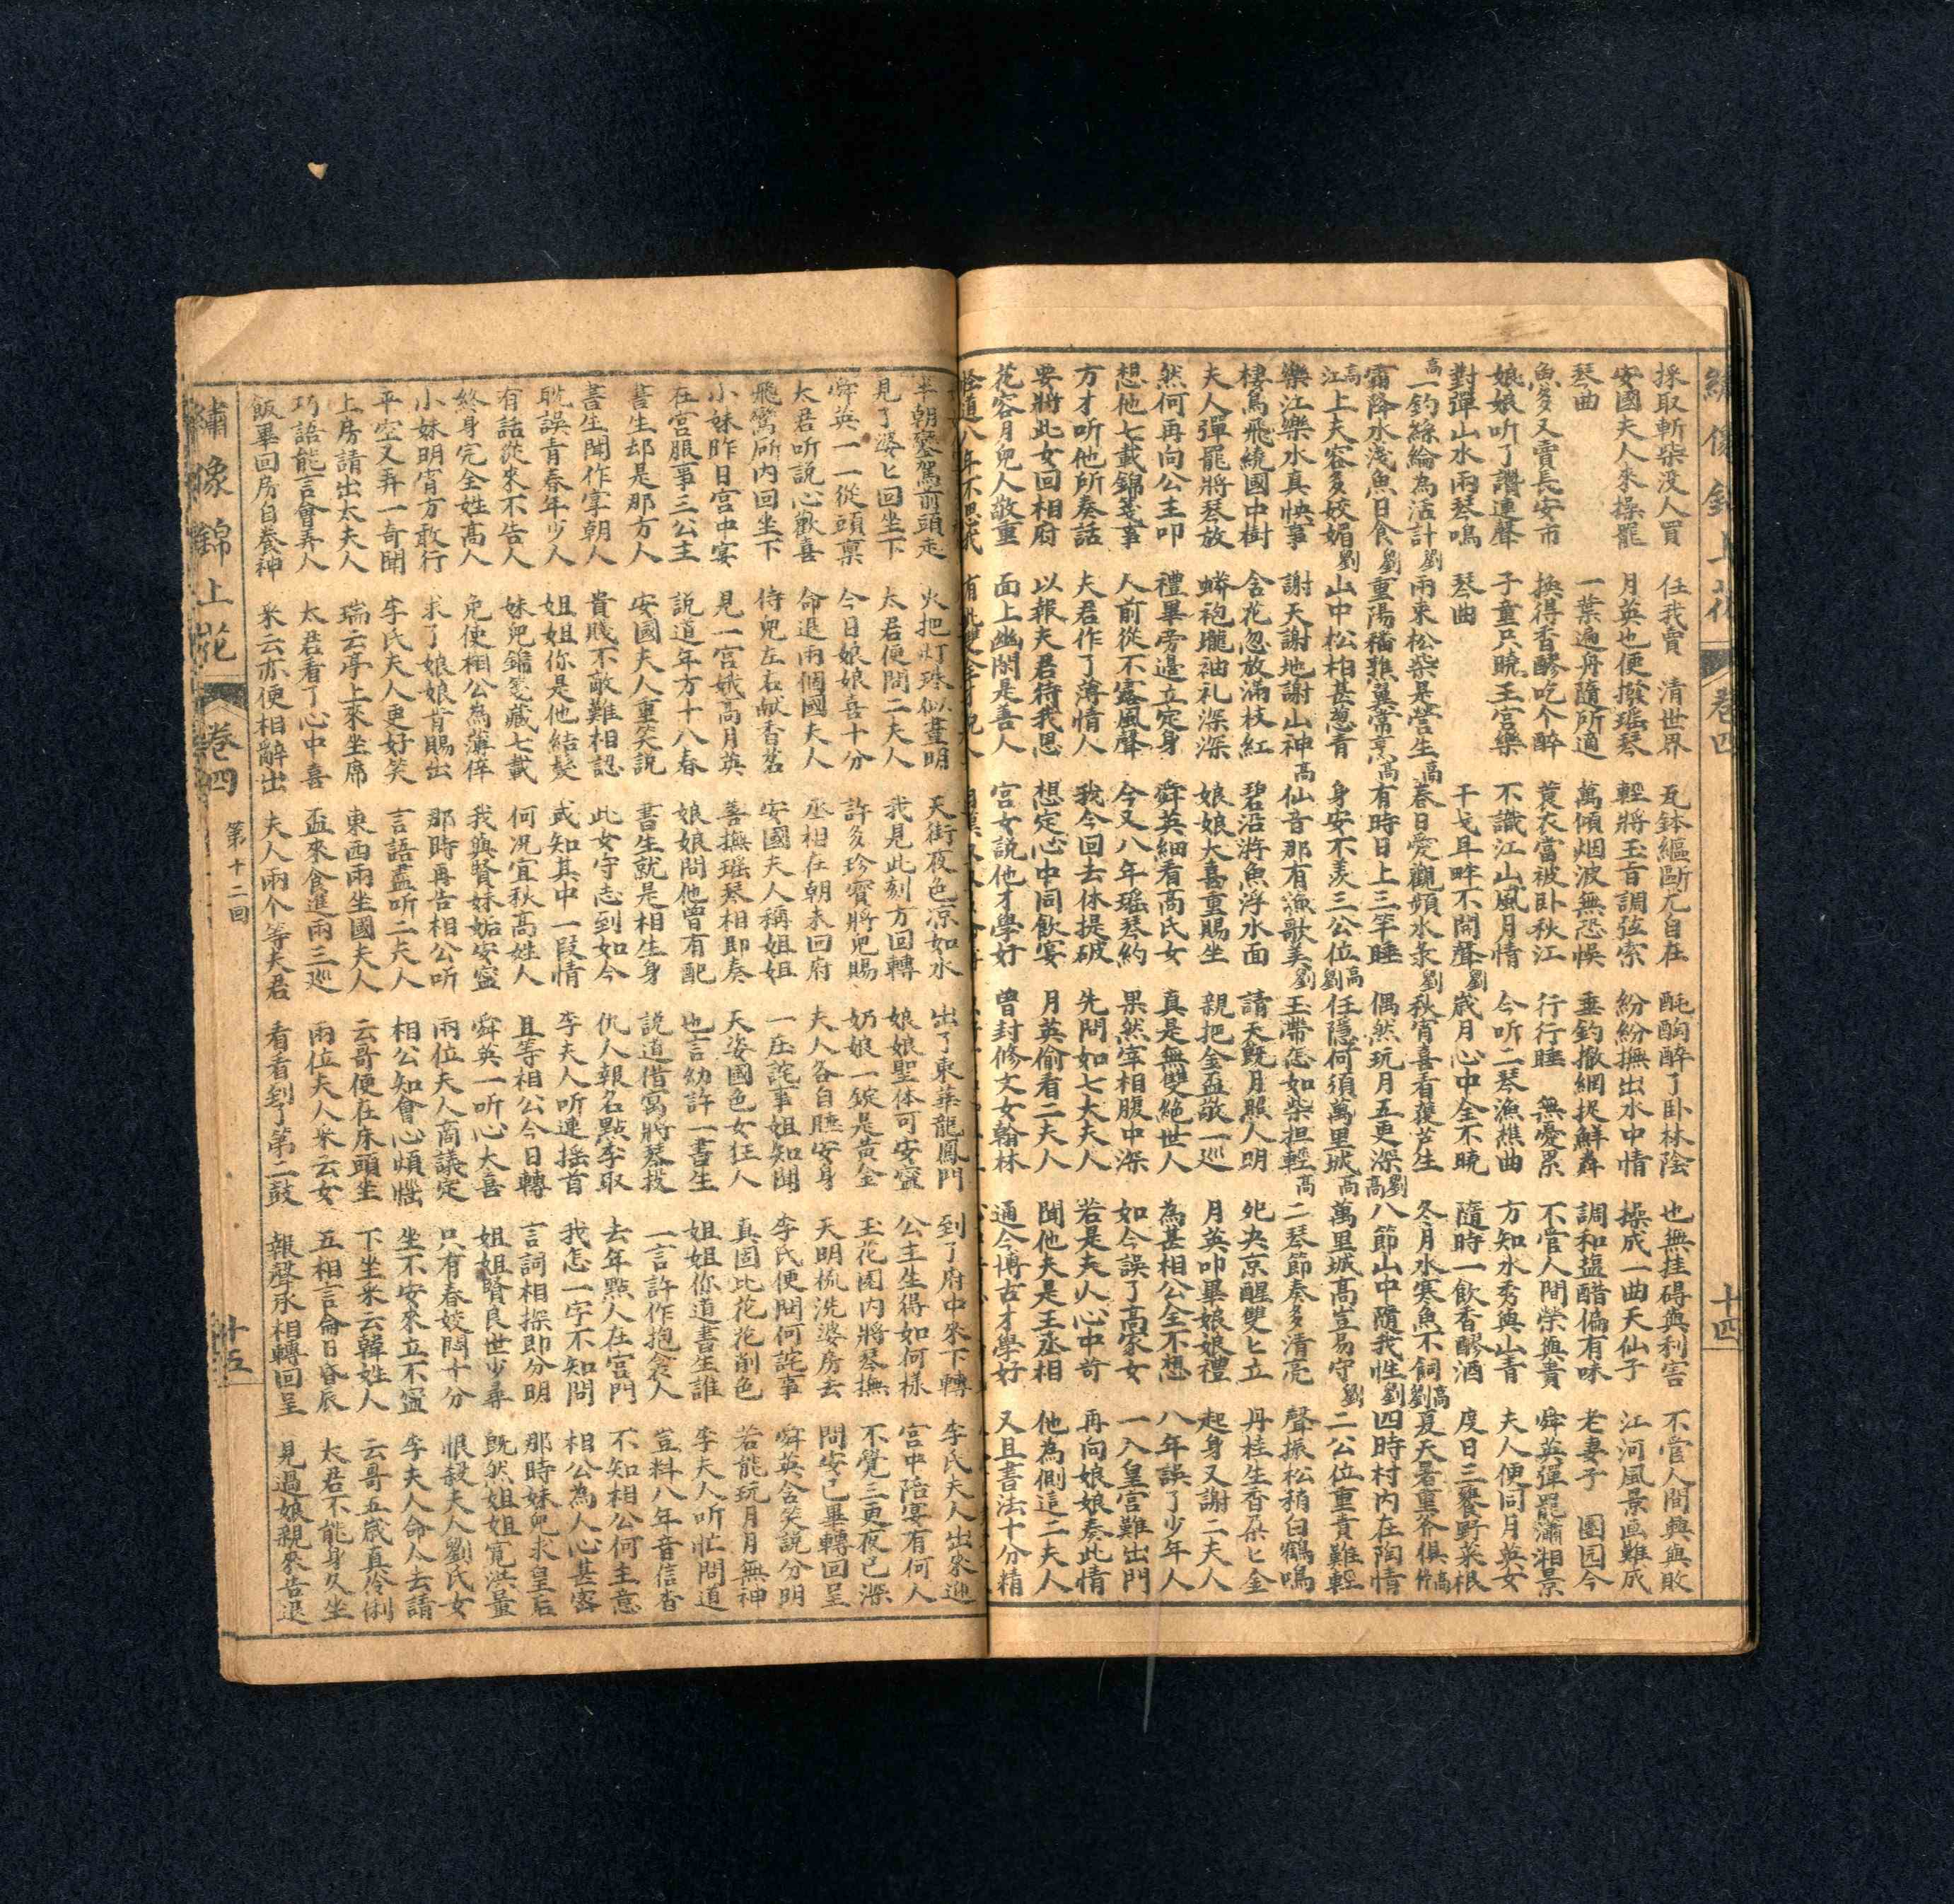 繡像錦上花　卷四　十四
採取斬柴沒人買　任我賣　清世界　瓦鉢緼斷尤自在　酕醄醉了卧林陰　也無挂碍與利害　不管人間興與敗
安國夫人來操罷　月英也便撥瑤琴　輕將玉百調弦索　紛紛撫出水中情　操成一曲天仙子　江河風景画難成
琴曲　一葉遍舟隨所適　萬傾烟波無恐悞　垂釣撤網捉鮮鱗　調和塩醋偏有味　老妻子　團园今
魚多又賣長安市　換得香醪吃个醉　蓑衣當被卧秋江　行行睡　無憂累　不管人間榮與貴　舜英彈罷瀟湘景
娘娘听了讚連聲　子童只曉王宮樂　不識江山風月情　今听二琴漁樵曲　方知水秀與山青　夫人便同月英女
對彈山水兩琴鳴　琴曲　干戈耳畔不聞聲　劉歲月心中全不曉　隨時一飲香醪酒　度日三餐野菜根
高一釣絲綸為活計　劉雨來松柴是營生　高春日愛觀頻水　劉秋宵喜看　冬月水寒魚不餌　高劉夏天暑重谷俱停
霜降水淺魚日食　劉重陽稻　常烹　高有時日上三竿睡　偶然玩月五更深　高劉八節山中隨我性　劉四時村內在陶情
高江上夫容多姣媚　劉山中松柏甚葱青　身安不羨三公位　高劉任隱何須萬里城　高萬里城高豈易守　劉二公位重責難輕
樂江樂水真快事　謝天謝地謝山神　高仙音那有漁歌美　劉玉帶怎如柴担輕　高二琴節奏多清亮　聲振松稍白鶴鳴
棲鳥飛繞國中樹　含花忽放滿枝紅　碧沿游魚浮水面　請天旣月照人明　死央京醒雙匕立　丹桂生香朶匕金
夫人彈罷將琴放　蟒袍瓏袖礼深深　娘娘大喜重賜坐　親把金盃敬一巡　月英叩畢娘娘禮　起身又謝二夫人
然何再向公主叩　禮畢旁邊立定身　舜英細看高氏女　真是無雙絕世人　為甚相公全不想　八年誤了少年人
想他七載錦箋事　人前從不露風聲　今又八年瑤琴約　果然宰相腹中深　如今誤了高家女　一入皇宮難出門
方才听他所奏話　夫君作了薄情人　我今回去休提破　先問如七大夫人　若是夫人心中苛　再向娘娘奏此情
要將此女回相府　以報夫君待我恩　想定心中同飲宴　月英偷看二夫人　聞他夫是王丞相　他為側這二夫人
花容月皃人敬重　面上幽閑是善人　宮女說他才學好　曾封修文女翰林　通今博古才學好　又且書法十分精
怪道八年不思
半朝鑾駕前頭走　火把灯珠似晝明　天街夜色凉如水　出了東華龍鳳門　到了府中來下轉　李氏夫人出來迎
見了婆匕回坐下　太君便問二夫人　我見此刻方回轉　娘娘聖体可安寧　公主生得如何樣　宮中陪宴有何人
舜英一一從頭禀　今日娘娘喜十分　許多珍寳將兒賜　奶娘一錠是黃金　玉花園內將琴撫　不覺三更夜已深
太君听說心歡喜　命退兩個國夫人　丞相在朝未回府　夫人各自睡安身　天明梳洗婆房去　問安已畢轉回呈
飛鸞𠩄內回坐下　侍兒左右献香茗　安國夫人稱姐姐　一庄詫事姐知聞　李氏便問何詫事　舜英含笑說分明
小妹昨日宮中宴　見一宮娥高月英　善撫瑤琴相即奏　天姿國色女狂人　真固比花花削色　若能玩月月無神
在宮服事三公主　說道年方十八春　娘娘問他曾有配　也言幼許一書生　姐姐你道書生誰　李夫人听忙問道
書生却是那方人　安國夫人重笑說　書生就是相生身　說道借寓將琴拔　一言許作抱衾人　豈料八年音信杳
書生聞作掌朝人　貴賤不敵難相認　此女守志到如今　仇人報名點李取　去年點人在宮門　不知相公何主意
眈誤青春年少人　姐姐你是他結髮　或知其中一叚情　李夫人听連搖首　我怎一字不知問　相公為人心甚密
有話從來不告人　妹兒錦箋藏七載　何况宜秋高姓人　且等相公今日轉　言詞相探即分明　那時妹兒求皇后
終身完全姓高人　免使相公為薄倖　我與賢妹姤安寧　舜英一听心大喜　姐姐賢良世少尋　旣然姐姐寬洪量
小妹明宵方敢行　求了娘娘肯賜出　那時再告相公听　兩位夫人商議定　只有春姣悶十分　恨殺夫人劉氏女
平空又弄一奇聞　李氏夫人更好笑　言語盡听二夫人　相公知會心煩惱　坐不安來立不寧　李夫人命人去請
上房請出太夫人　瑞云亭上來坐席　東西兩坐國夫人　云哥便在床頭坐　下坐米云韓姓人　云哥五歲真伶俐
巧語能言會弄人　太君看了心中喜　盃來食進兩三巡　兩位夫人米云女　五相言侖日昏辰　太君不能身久坐
飯畢回房自養神　米云亦便相辭出　夫人兩个等夫君　看看到了第二鼓　報聲丞相轉回呈　見過娘親來告退
繡像錦上花　卷四　第十二回　十五